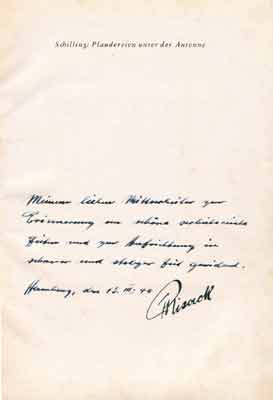 Schilling: Plaudereien unter der Antenne
Meinem lieben Mitarbeiter zur
Erinnerung an schöne verlebte
Zeiten und zur Aufrichtung in
schwerer und stolzer Zeit gewidmet.
Hamburg, den 13. III. 44